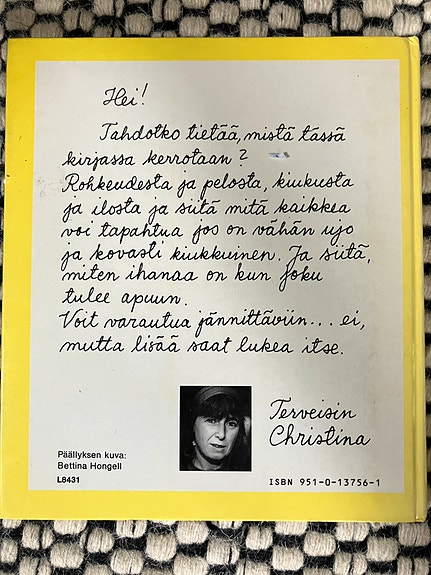 Hei!
Tahdotko tietää, mistä tässä
kirjassa kerrotaan?
Rohkeudesta ja pelosta, kiukusta
ja ilosta ja siitä mitä kaikkea
voi tapahtua jos on vähän ujo
ja kovasti kiukkuinen. Ja siitä,
miten ihanaa on kun joku
tulee apuun.
Voit varautua jännittäviin... ei,
mutta lisää saat lukea itse.
Terveisin
Christina
Päällyksen kuva:
Bettina Hongell
L8431
ISBN 951-0-13756-1